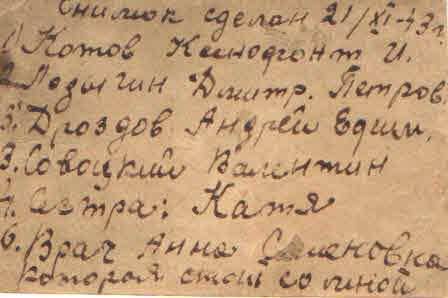 Снимок сделан 21/XI-43г
1) Котов Ксенофонт И.
2. Лозыгин Дмитр. Петров
5. Дроздов Андрей Ефим.
3. Совоцкий Валентин
4. Сестра: Катя
6. Врач Анна Семеновна
которая стоит со мной